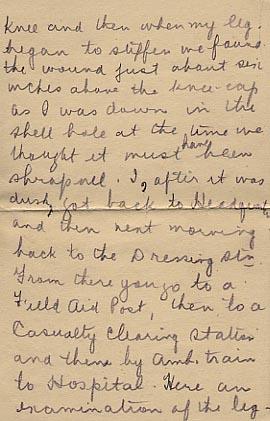 knee and then when my leg
began to stiffen we found
the wound just about six
inches above the knee-cap
as I was down in the
shell hole at the time we
thought it must have been
shrapnell. I, after it was
dusk, got back to Headquats
and then next morning
back to the Dressing Stn.
From there you go to a
Field Aid Post, then to a
Casualty Clearing Station
and thence by Amb. train
to Hospital. Here an
examination of the leg-